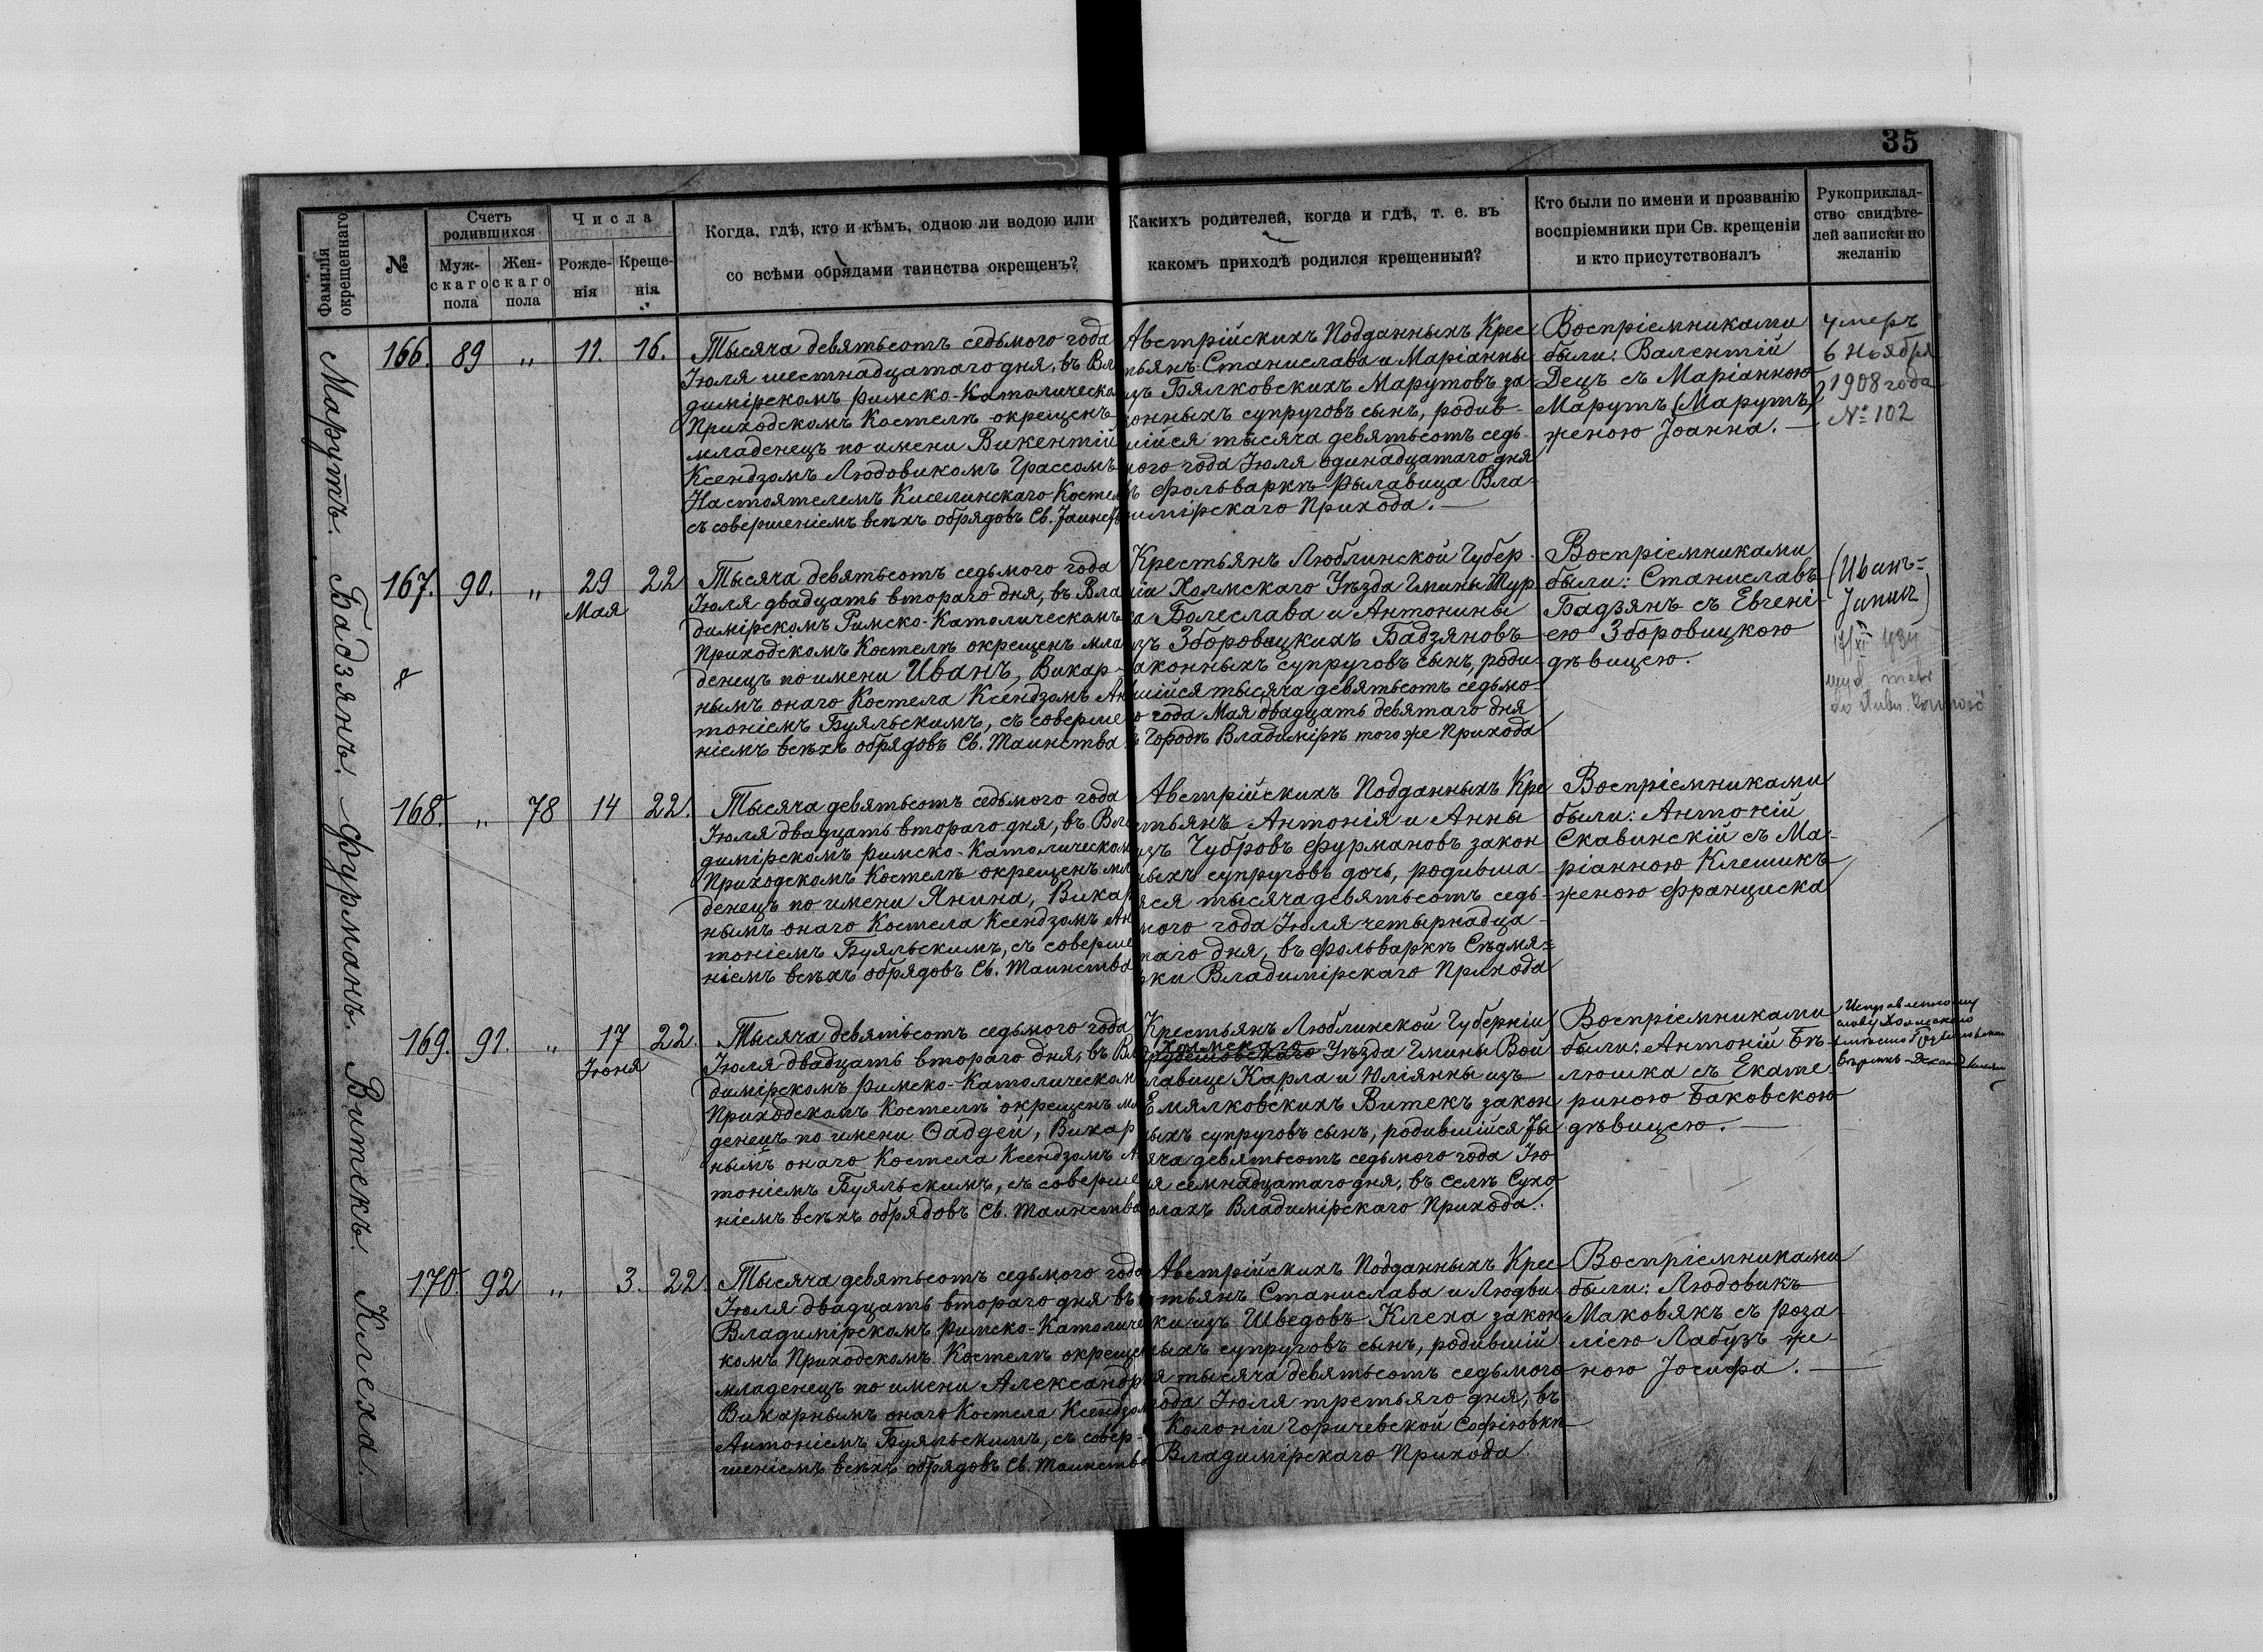 35
Фамилія окрещеннаго
№
Счетъ родившихся
Мужскаго пола
Женскаго пола
Числа
Рожденія
Крещенія
Когда, гдѣ, кто и кѣмъ, одною ли водою или
со всѣми обрядами таинства окрещенъ?
Какихъ родителей, когда и гдѣ, т. е. въ
какомъ приходѣ родился крещенный?
Кто были по имени и прозванію
воспріемники при Св. крещеніи
и кто присутствовалъ
Рукоприклад-
ство свидѣте-
лей записки по
желанію
Марутъ.
166. 89 „ 11. 16.
Тысяча девятьсотъ седьмого года
Іюля шестнадцатаго дня, въ Вла
димірскомъ Римско-Католическо
Приходскомъ Костелѣ окрещенъ
младенецъ по имени Викентій
Ксендзомъ Людовикомъ Грассомъ
Настоятелемъ Киселинскаго Костел
съ совершеніемъ всѣхъ обрядовъ Св. Таинств
Австрійскихъ Подданныхъ Крес
тьянъ Станислава и Маріанны
изъ Бялковскихъ Марутовъ за
конныхъ супруговъ сынъ, родив-
шійся тысяча девятьсотъ седь-
мого года Іюля одинадцатаго дня
въ Фольваркѣ Рылавица Вла-
димірскаго Прихода.
Воспріемниками
были: Валентій
Децъ съ Маріанною
Марутъ (Марутъ)
женою Іоанна.
Умеръ
6 Ноября
1908 года
№ 102
Бадзянъ.
167. 90. „ 29 22
Мая
Тысяча девятьсотъ седьмого года
Іюля двадцать втораго дня, въ Вла
димірскомъ Римско-Католическомъ
Приходскомъ Костелѣ окрещенъ мла
денецъ по имени Иванъ, Викар-
нымъ онаго Костела Ксендзомъ Ан
тоніемъ Буяльскимъ, съ соверше
ніемъ всѣхъ обрядовъ Св. Таинства
Крестьянъ Люблинской Губер-
ніи Холмскаго Уѣзда Гмины Жур
ка Болеслава и Антонины
изъ Зборовицкихъ Бадзяновъ
законныхъ супруговъ сынъ, роди-
вшійся тысяча девятьсотъ седьмо-
го года Мая двадцать девятаго дня
въ Городѣ Владимірѣ того же Прихода
Воспріемниками
были: Станиславъ
Бадзянъ съ Евгені-
ею Зборовицкою
дѣвицею.
(Иванъ=
Janusz)
Фурманъ.
168. „ 78 14 22.
Тысяча девятьсотъ седьмого года
Іюля двадцать втораго дня, въ Вла
димірскомъ Римско-Католическом
Приходскомъ Костелѣ окрещенъ мла
денецъ по имени Янина, Викар
нымъ онаго Костела Ксендзомъ Ан
тоніемъ Буяльскимъ, съ соверше
ніемъ всѣхъ обрядовъ Св. Таинства
Австрійскихъ Подданныхъ Кре
стьянъ Антонія и Анны
изъ Чубровъ Фурмановъ закон
ныхъ супруговъ дочь, родивша-
яся тысяча девятьсотъ седь-
мого года Іюля четырнадца-
таго дня, въ Фольваркѣ Сѣдмя=
рки Владимірскаго Прихода
Воспріемниками
были: Антоній
Скавинскій съ Ма-
ріанною Клешикъ
женою Франциска
Витекъ.
169. 91. „ 17 22
Іюня
Тысяча девятьсотъ седьмого года
Іюля двадцать втораго дня, въ Вла
димірскомъ Римско-Католическом
Приходскомъ Костелѣ окрещенъ мла
денецъ по имени Фаддей, Викар
нымъ онаго Костела Ксендзомъ Ан
тоніемъ Буяльскимъ, съ соверше
ніемъ всѣхъ обрядовъ Св. Таинства
Крестьянъ Люблинской Губерніи
Холмскаго
Уѣзда Гмины Вой
славице Карла и Юліянны изъ
Емялковскихъ Витекъ закон
ныхъ супруговъ сынъ, родившійся Ты
сяча девятьсотъ седьмого года Ію
ня семнадцатаго дня, въ Селѣ Сухо
долахъ Владимірскаго Прихода.
Воспріемниками
были: Антоній Бѣ-
люшка съ Екате
риною Баковскою
дѣвицею.
Исправленному
слову Холмскаго
Клеха.
170. 92 „ 3. 22.
Тысяча девятьсотъ седьмого года
Іюля двадцать втораго дня въ
Владимірскомъ Римско-Католичес
комъ Приходскомъ Костелѣ окрещен
младенецъ по имени Александр
Викарнымъ онаго Костела Ксендзом
Антоніемъ Буяльскимъ, съ совер-
шеніемъ всѣхъ обрядовъ Св. Таинства
Австрійскихъ Подданныхъ Крес
тьянъ Станислава и Людви
ки изъ Шведовъ Клеха закон
ныхъ супруговъ сынъ, родившій
ся тысяча девятьсотъ седьмого
года Іюля третьяго дня, въ
Колоніи Горичевской Софіювкѣ
Владимірскаго Прихода
Воспріемниками
были: Людовикъ
Маковякъ съ Роза-
ліею Лабузъ же-
ною Іосифа.